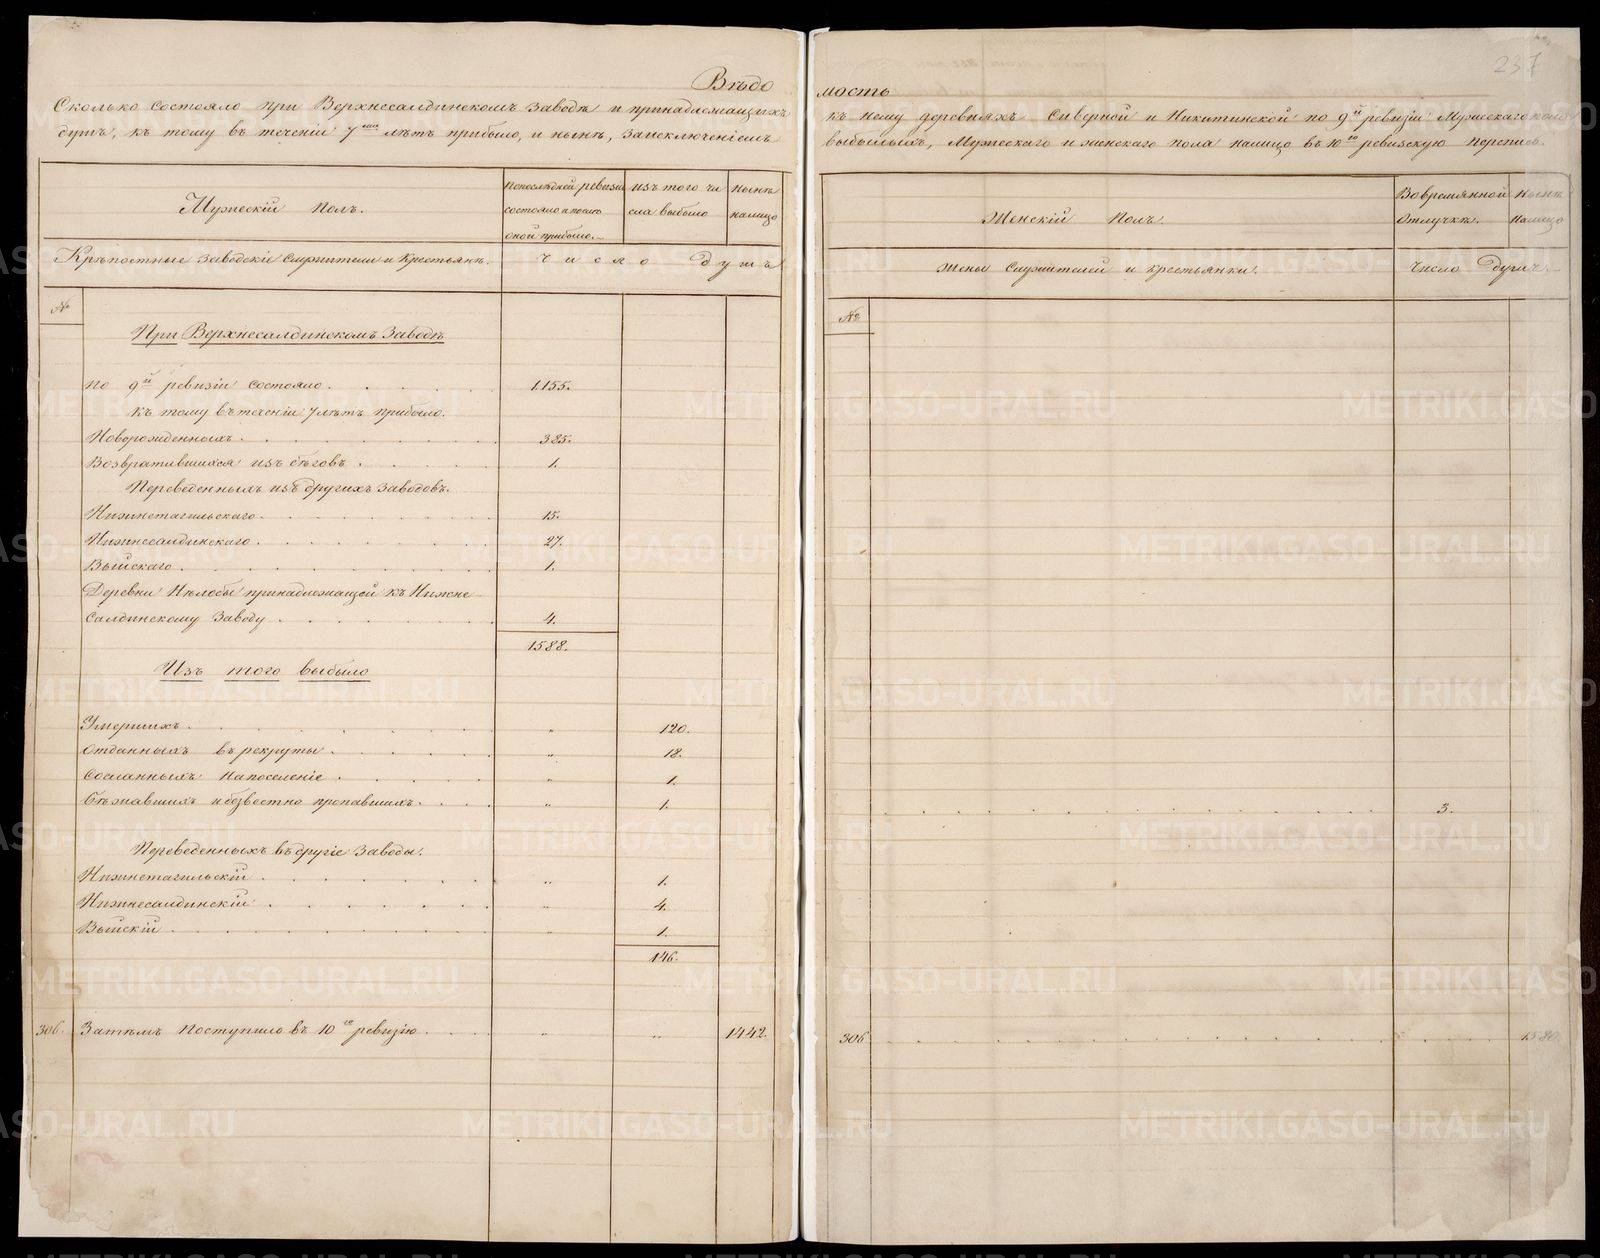 237
Вѣдо мость
Сколько состояло при Верхнесалдинскомъ заводѣ и принадлежащихъ къ нему деревняхъ Сѣверной и Никитинской по 9й ревизіи Мужескаго пола
душъ, къ тому въ теченіи 7ми лѣтъ прибыло, и нынѣ, заисключеніемъ выбылыхъ, Мужескаго и женскаго пола налицо въ 10ю ревизскую перепись.
Мужескій Полъ.
Попослѣдней ревизіи
состояло ипослѣ
оной прибыло.
изъ того чи
сла выбыло
нынѣ
налицо
Женскій Полъ.
Вовремянной
отлучкѣ.
нынѣ
налицо
Крѣпостные Заводскіе Служители и Крестьянъ.
число душъ
жены служителей и крестьянки.
Число Душъ.
№
№
При Верхнесалдинскомъ Заводѣ
по 9й ревизіи состояло . 1155.
къ тому втеченіи 7 лѣтъ прибыло.
Новорожденныхъ. 385.
Возвратившихся изъ бѣговъ . 1.
Переведенныхъ изъ другихъ заводовъ.
Нижнетагильскаго. 15.
Нижнесалдинскаго. 27.
Выйскаго. 1.
Деревни Нѣлобы принадлежащей къ Нижне
Салдинскому Заводу . 4.
1588.
Изъ того выбыло
Умершихъ. „ 120.
отданныхъ въ рекруты . „ 18.
Сосланныхъ напоселеніе . „ 1.
Бѣжавшихъ ибезвестно пропавшихъ. „ 1. 3.
Переведенныхъ въ другіе Заводы.
Нижнетагильскій . „ 1.
Нижнесалдинскій . „ 4.
Выйскій . „ 1.
146.
306. Затѣмъ Поступило въ 10ю ревизію . „ „ 1442. 306 1580.
METRIKI.GASO-URAL.RU